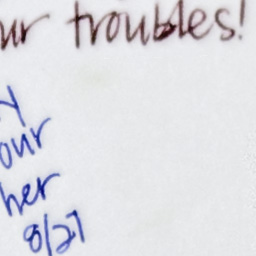 ur troubles!
y
our
her
8/27